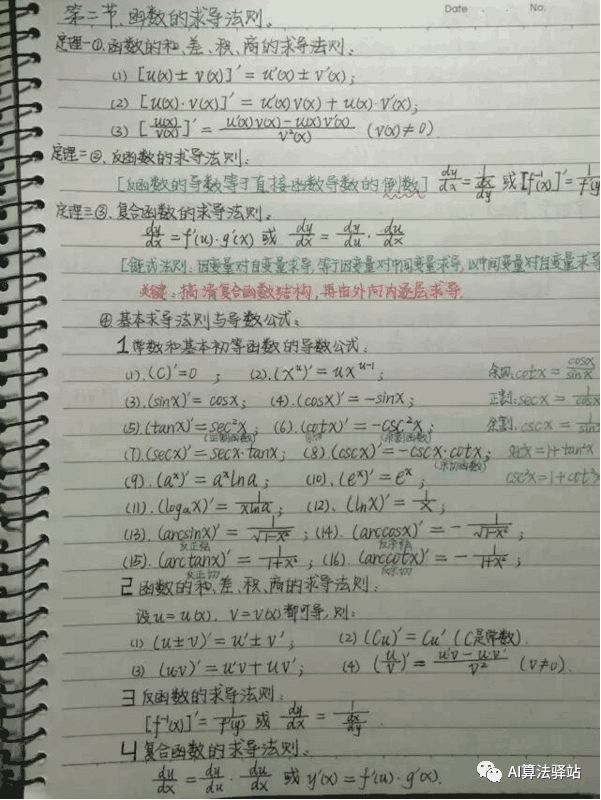 Date . . No.
第二节、函数的求导法则。
定理一①.函数的和、差、积、商的求导法则:
(1) [u(x)±v(x)]′ = u′(x)±v′(x);
(2) [u(x)·v(x)]′ = u′(x)v(x)+u(x)·v′(x);
(3) [u(x)/v(x)]′ = (u′(x)v(x)-u(x)v′(x))/v²(x) (v(x)≠0)
定理二②、反函数的求导法则:
[反函数的导数等于直接函数导数的倒数] dy/dx = 1/(dx/dy) 或 [f⁻¹(x)]′ = 1/f′(y)
定理三③.复合函数的求导法则。
dy/dx = f′(u)·g′(x) 或 dy/dx = dy/du · du/dx
[链式法则:因变量对自变量求导,等于因变量对中间变量求导,以中间变量对自变量求导
关键:搞清复合函数结构,再由外向内逐层求导.
④基本求导法则与导数公式:
1常数和基本初等函数的导数公式:
(1).(C)′=0 ; (2).(xᵘ)′= uxᵘ⁻¹ 余切:cotx = cosx/sinx
(3).(sinx)′= cosx; (4).(cosx)′=-sinx; 正割:secx = 1/cosx
(5).(tanx)′=sec²x; (6).(cotx)′=-csc²x; 余割.cscx = 1/sinx
(正割函数) (余割函数)
(7).(secx)′=secx·tanx; (8).(cscx)′=-cscx·cotx; sec²x=1+tan²x
(余切函数)
(9).(aˣ)′=aˣlna; (10).(eˣ)′=eˣ; csc²x=1+cot²x
(11).(logₐx)′= 1/(xlna); (12)、(lnx)′= 1/x;
(13).(arcsinx)′= 1/√(1-x²); (14).(arccosx)′=- 1/√(1-x²);
反正弦 反余弦
(15).(arctanx)′= 1/(1+x²); (16).(arccotx)′=- 1/(1+x²);
反正切 反余切
2函数的和、差、积、商的求导法则:
设u=u(x), v=v(x)都可导,则:
(1) (u±v)′=u′±v′; (2) (Cu)′=Cu′ (C是常数).
(3) (u·v)′=u′v+uv′; (4) (u/v)′= (u′v-u·v′)/v² (v≠0).
3反函数的求导法则:
[f⁻¹(x)]′= 1/f′(y) 或 dy/dx = 1/(dx/dy).
4复合函数的求导法则:
dy/dx = dy/du · du/dx 或 y′(x)=f′(u)·g′(x).
AI算法驿站